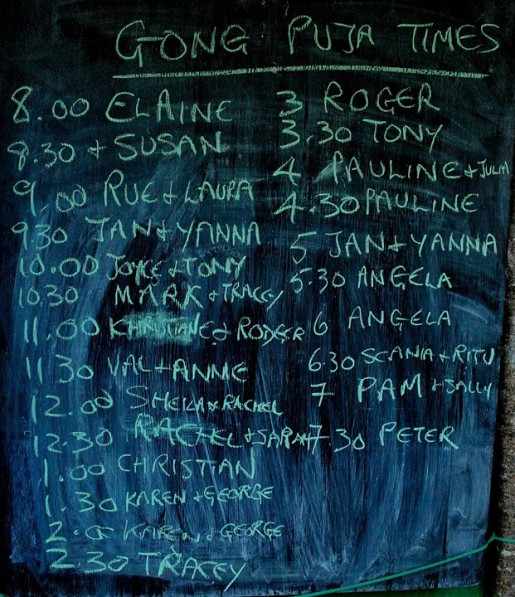 GONG PUJA TIMES
8.00 ELAINE
8.30 + SUSAN
9.00 RUE + LAURA
930 JAN + YANNA
10.00 JOYCE + TONY
1030 MARK + TRACEY
11.00 KHRISTIANE + RODGER
1130 VAL + ANNIE
12.00 SHEILA + RACHEL
12.30 RACHEL + SARAH
1.00 CHRISTIAN
1.30 KAREN + GEORGE
2.00 KAREN + GEORGE
2.30 TRACEY
3 ROGER
3.30 TONY
4 PAULINE + JULIA
4.30 PAULINE
5 JAN + YANNA
5.30 ANGELA
6 ANGELA
6.30 SCANIA + RITU
7 PAM + SALLY
7.30 PETER